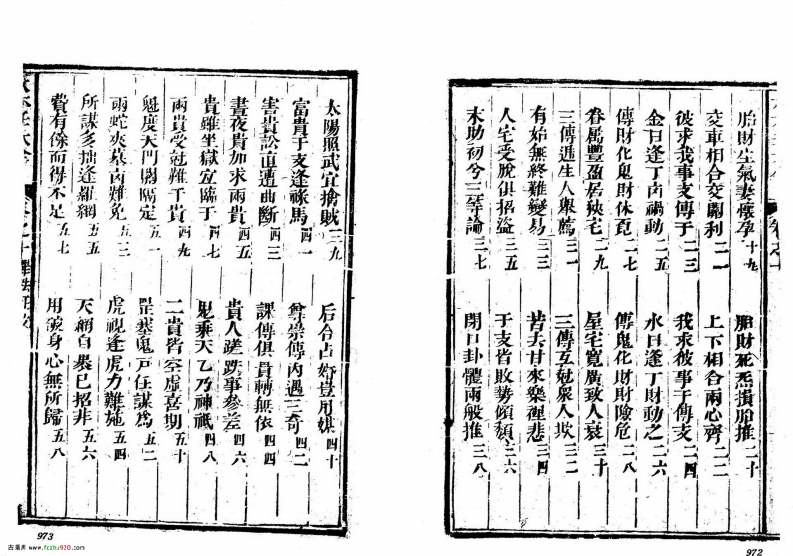 胎財生氣妻懷孕 十九
胎財死炁損胎推 二十
交車相合交關利 二一
上下相合兩心齊 二二
彼求我事支傳干 二三
我求彼事干傳支 二四
金日逢丁凶禍動 二五
水日逢丁財動之 二六
傳財化鬼財休覓 二七
傳鬼化財財險危 二八
眷屬豐盈居狹宅 二九
屋宅寬廣致人衰 三十
三傳遞生人舉薦 三一
三傳互尅眾人欺 三二
有始無終難變易 三三
苦去甘來樂裡悲 三四
人宅受脫俱招盜 三五
干支皆敗勢傾頹 三六
末助初兮三等論 三七
閉口卦體兩般推 三八
972
太陽照武宜擒賊 三九
后合占婚豈用媒 四十
富貴干支逢祿馬 四一
尊崇傳內遇三奇 四二
害貴訟直遭曲斷 四三
課傳俱貴轉無依 四四
晝夜貴加求兩貴 四五
貴人蹉跌事參差 四六
貴雖坐獄宜臨干 四七
鬼乘天乙乃神祇 四八
兩貴受尅難干貴 四九
二貴皆空虛喜期 五十
魁度天門關隔定 五一
罡塞鬼戶任謀為 五二
兩蛇夾墓凶難免 五三
虎視逢虎力難施 五四
所謀多拙逢羅網 五五
天網自裹己招非 五六
費有餘而得不足 五七
用破身心無所歸 五八
973
www.fczhu920.com